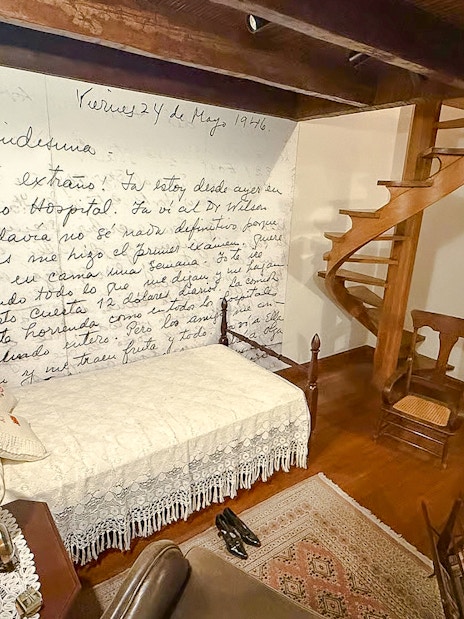 Viernes 24 de Mayo 1946.
indesima.
extraño! Ya estoy desde ayer en
o Hospital. Ya vi al Dr Wilson
davía no se nada definitivo porque
s me hizo el primer examen, quiere
en cama una semana. Yo te
ndo todo lo que me digan y me hagan
to cuesta 12 dolares diarios, la comida
ta horrenda como en todos los hospitales
undo entero. Pero los amig
y me traen fruta y todo